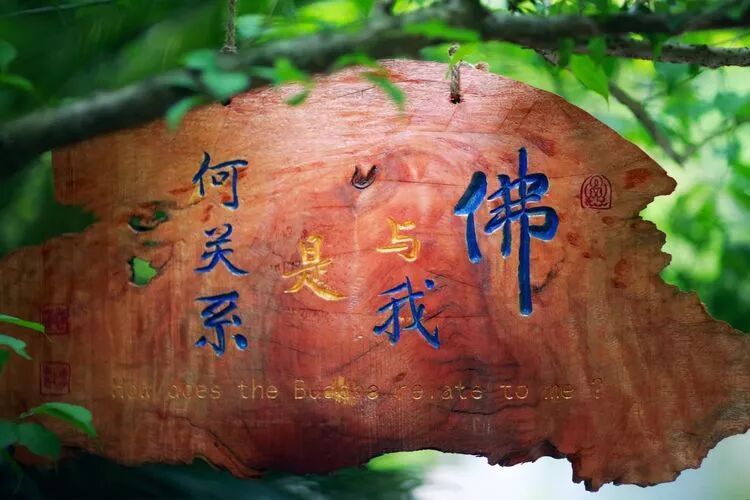 佛
与我
是
何关系
How does the Buddha relate to me ?